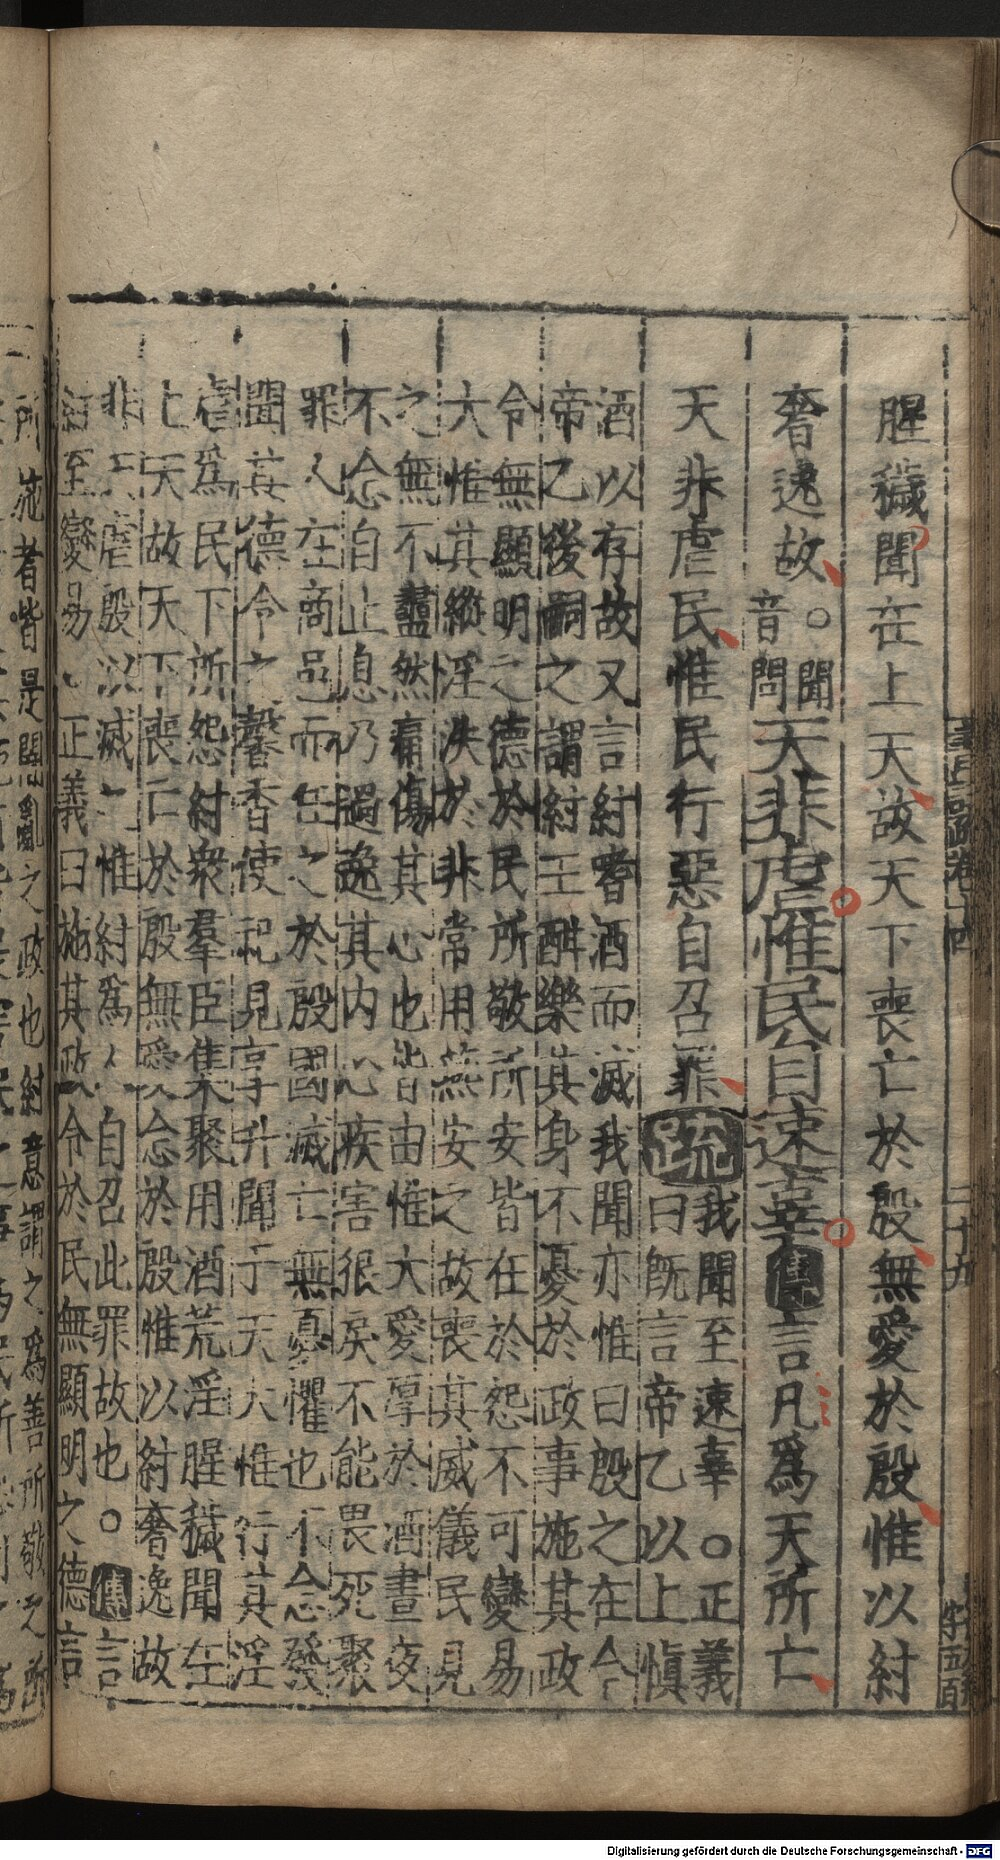 書疏卷十四 二十九
字五百
腥穢聞在上天故天下喪亡於殷無愛於殷惟以紂
奢逸故。聞音問天非虐惟民自速辜傳言凡爲天所亡
天非虐民惟民行惡自召罪疏我聞至速辜。正義
曰既言帝乙以上愼
酒以存故又言紂嗜酒而滅我聞亦惟曰殷之在今
帝乙後嗣之謂紂王酣樂其身不憂於政事施其政
令無顯明之德於民所敬所安皆在於怨不可變易
大惟其縱淫泆於非常用燕安之故喪其威儀民見
之無不盡然痛傷其心也皆由惟大愛厚於酒晝夜
不念自止息乃過逸其內心疾害很戾不能畏死聚
罪人在商邑而任之於殷國滅亡無憂懼也不念發
聞其德令之馨香使祀見享升聞于天大惟行其淫
虐爲民下所怨紂衆羣臣集聚用酒荒淫腥穢聞在
上天故天下喪亡於殷無愛念於殷惟以紂奢逸故
非天虐殷以滅之惟紂爲人自召此罪故也。傳言
紂至變易正義曰施其政令於民無顯明之德言
所施者皆是闇亂之政也紂意謂之爲善所敬之所
Digitalisierung gefördert durch die Deutsche Forschungsgemeinschaft - DFG